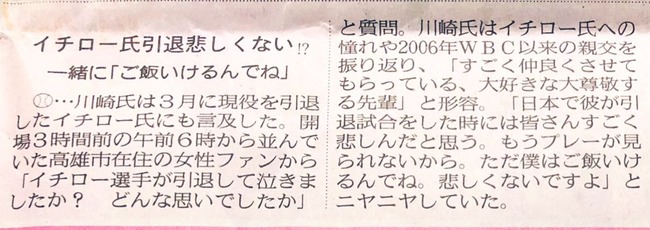 イチロー氏引退悲しくない!?
一緒に「ご飯いけるんでね」
⚾…川崎氏は3月に現役を引退
したイチロー氏にも言及した。開
場3時間前の午前6時から並んで
いた高雄市在住の女性ファンから
「イチロー選手が引退して泣きま
したか? どんな思いでしたか」
と質問。川崎氏はイチロー氏への
憧れや2006年WBC以来の親交を
振り返り、「すごく仲良くさせて
もらっている、大好きな大尊敬す
る先輩」と形容。「日本で彼が引
退試合をした時には皆さんすごく
悲しんだと思う。もうプレーが見
られないから。ただ僕はご飯いけ
るんでね。悲しくないですよ」と
ニヤニヤしていた。